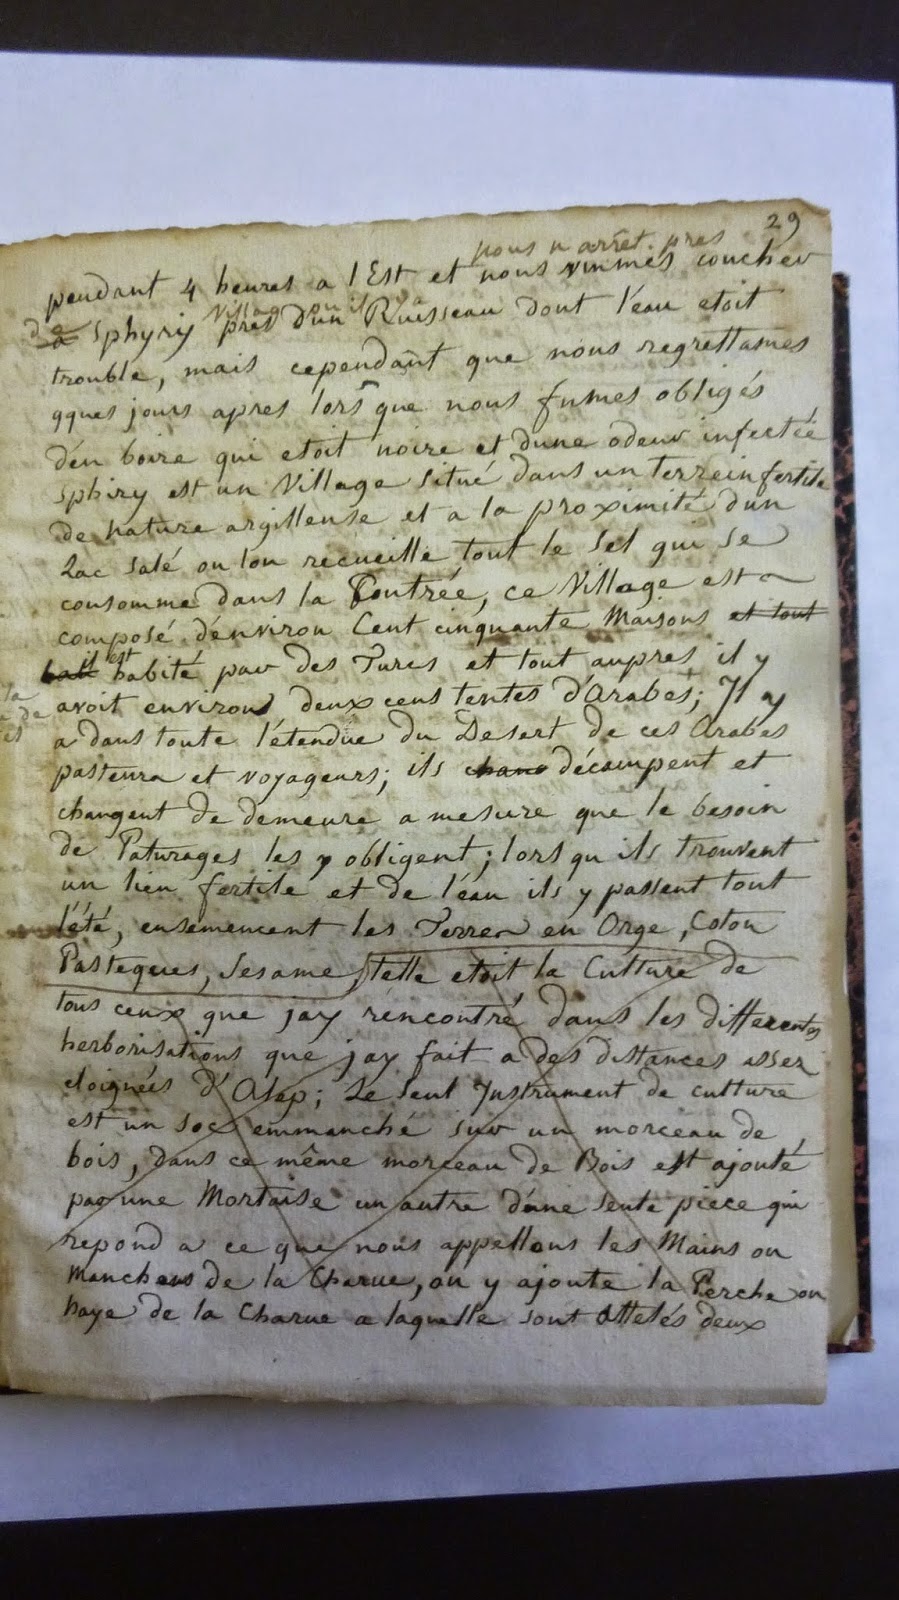 29
nous n arrêt. pres
pendant 4 heures a l'Est et nous vinmes coucher
de a Sphyry Village pres d'un Ruisseau dont l'eau etoit
trouble, mais cependant que nous regrettames
qques jours apres lors que nous fumes obligés
d'en boire qui etoit noire et d'une odeur infectée
Sphiry est un Village situé dans un terrein fertile
de nature argilleuse et a la proximité d'un
Lac salé ou l'on recueille tout le sel qui se
consomme dans la Contrée, ce Village est
composé d'environ Cent cinquante Maisons et tout
il est habité par des Turcs et tout aupres il y
avoit environ deux cens tentes d'Arabes; Il y
a dans toute l'étendüe du Desert de ces Arabes
pasteurs et voyageurs; ils chang décampent et
changent de demeure a mesure que le besoin
de Paturages les y obligent; lors qu'ils trouvent
un lieu fertile et de l'eau ils y passent tout
l'été, ensemencent les Terres en Orge, Coton
Pasteques, Sesame, telle etoit la Culture de
tous ceux que j'ay rencontré dans les differentes
herborisations que j'ay fait a des distances assez
eloignées d'Alep; Le seul Instrument de culture
est un soc emmanché sur un morceau de
bois, dans ce même morceau de Bois est ajouté
par une Mortaise un autre d'une seule piece qui
repond a ce que nous appellons les Mains ou
Manchens de la Charue, on y ajoute la Perche ou
haye de la Charue a laquelle sont Attelés deux